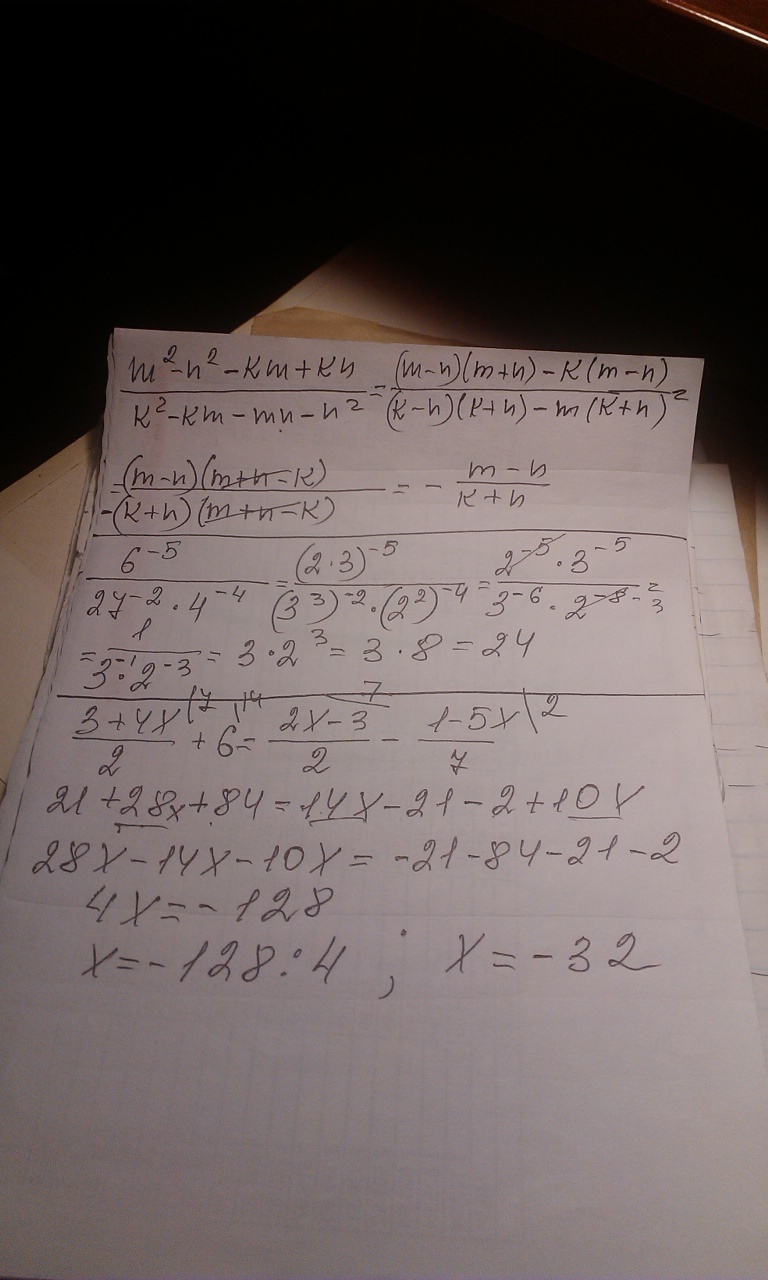 (m²-n²-km+kn)/(k²-km-mn-n²) = ((m-n)(m+n)-k(m-n))/((k-n)(k+n)-m(k+n)) =
= (m-n)(m+n-k)/-(k+n)(m+n-k) = - (m-n)/(k+n)
6⁻⁵/(27⁻²·4⁻⁴) = (2·3)⁻⁵/((3³)⁻²·(2²)⁻⁴) = (2⁻⁵·3⁻⁵)/(3⁻⁶·2⁻⁸) =
= 1/(3⁻¹·2⁻³) = 3·2³ = 3·8 = 24
(3+4x)/2 \7 + 6 \14 = (2x-3)/2 \7 - (1-5x)/7 \2
21+28x+84=14x-21-2+10x
28x-14x-10x= -21-84-21-2
4x=-128
x=-128:4 ; x=-32